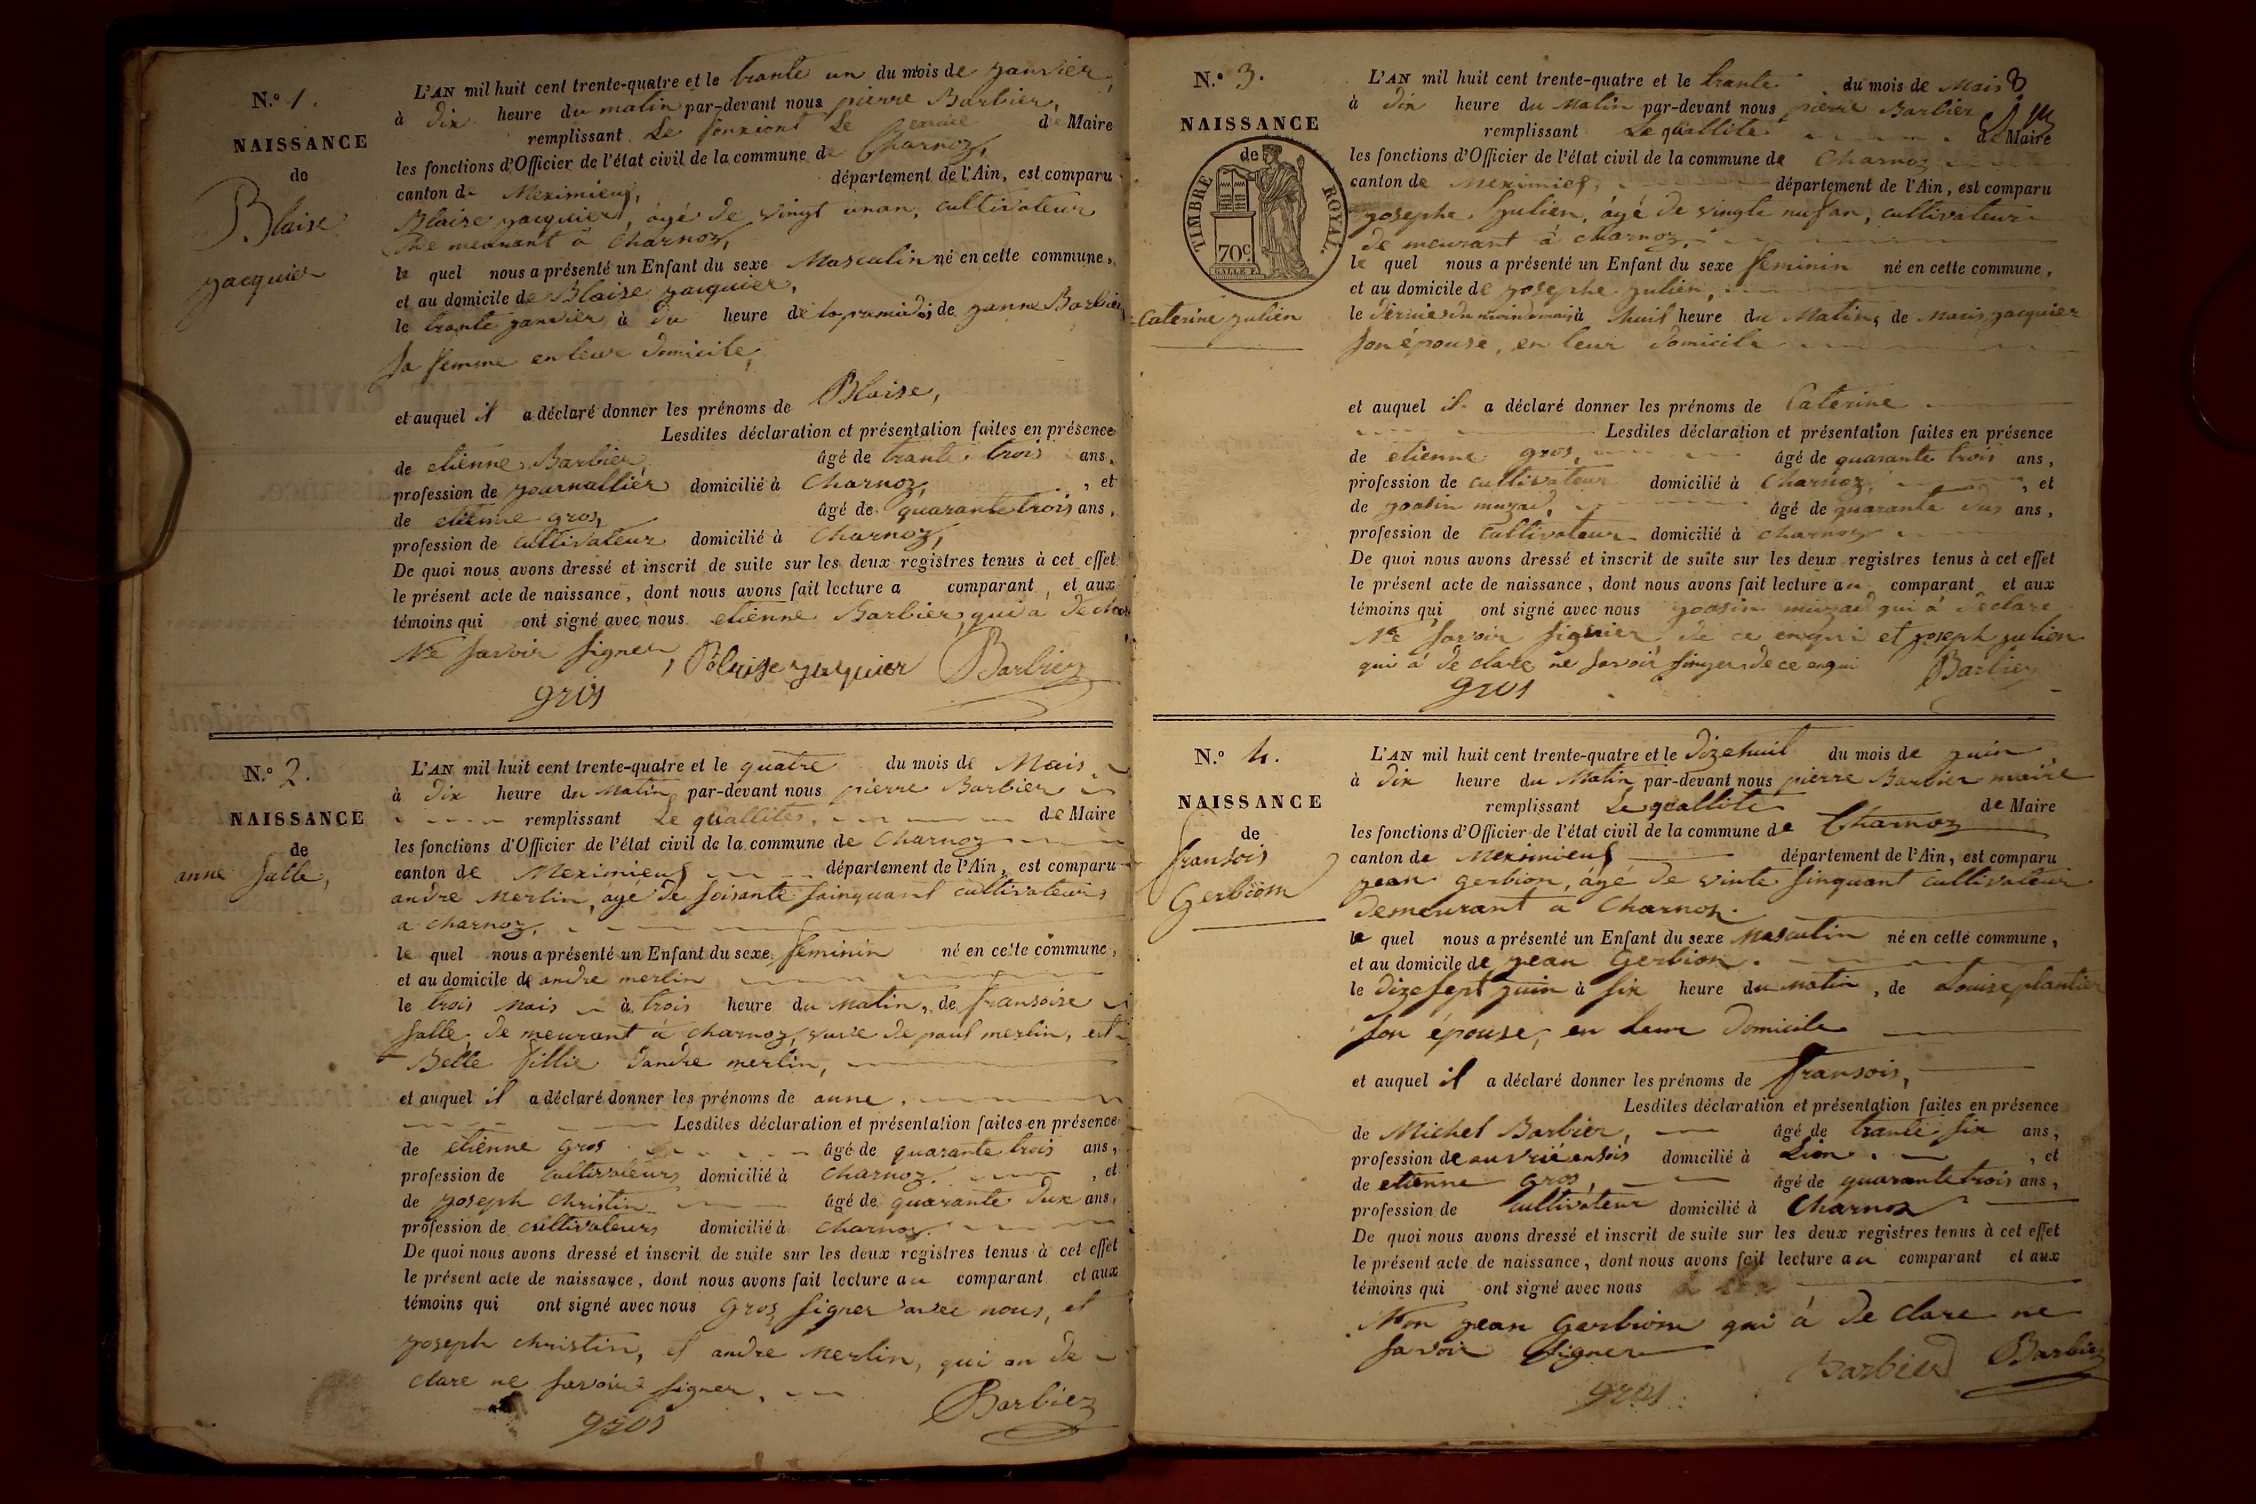 N.º 1.
NAISSANCE
de
Blaise
jacquier
L'AN mil huit cent trente-quatre et le trante un du mois de janvier,
à dix heure du matin par-devant nous pierre Barbier,
remplissant Le fonxions Le de Maire
les fonctions d'Officier de l'état civil de la commune de Charnoz,
canton de Meximieux, département de l'Ain, est comparu
Blaise jacquier, âgé de vingt unan, cultivateur
de meurant à Charnoz,
le quel nous a présenté un Enfant du sexe Masculin né en cette commune,
et au domicile de Blaise jacquier,
le trante janvier à du heure de de janne Barbier
sa femme en leur Domicile,
et auquel il a déclaré donner les prénoms de Blaise,
Lesdites déclaration et présentation faites en présence
de etienne Barbier, âgé de trante trois ans,
profession de journallier domicilié à Charnoz, , et
de etienne gros, âgé de quarante trois ans,
profession de cultivateur domicilié à Charnoz,
De quoi nous avons dressé et inscrit de suite sur les deux registres tenus à cet effet
le présent acte de naissance, dont nous avons fait lecture a comparant, et aux
témoins qui ont signé avec nous etienne Barbier qui a declare
Ne savoir signer, Blaise jacquier Barbier
gros
N.º 2.
NAISSANCE
de
anne salle,
L'AN mil huit cent trente-quatre et le quatre du mois de Mais
à dix heure du Matin par-devant nous pierre Barbier
remplissant Le quallites, de Maire
les fonctions d'Officier de l'état civil de la commune de Charnoz
canton de Meximieux département de l'Ain, est comparu
andre Merlin, âgé de soisante sainquant cultivateur
a charnoz,
le quel nous a présenté un Enfant du sexe feminin né en cette commune,
et au domicile de andre merlin
le trois Mais à trois heure du Matin, de fransoise
salle, de meurant à charnoz, vuve de paul merlin, est
Belle fillie dandre merlin,
et auquel il a déclaré donner les prénoms de anne,
Lesdites déclaration et présentation faites en présence
de etienne gros âgé de quarante trois ans,
profession de cultivateur domicilié à charnoz. , et
de joseph christin âgé de quarante dux ans,
profession de cultivateur domicilié à charnoz.
De quoi nous avons dressé et inscrit de suite sur les deux registres tenus à cet effet
le présent acte de naissance, dont nous avons fait lecture au comparant et aux
témoins qui ont signé avec nous gros signer avec nous, et
joseph christin, et andre Merlin, qui on de
clare ne savoir signer,
gros Barbier
N.º 3.
NAISSANCE
de
TIMBRE ROYAL.
70c
Caterine julien
3
L'AN mil huit cent trente-quatre et le trante du mois de Mais
à dix heure du Matin par-devant nous pierre Barbier
remplissant Le quallite de Maire
les fonctions d'Officier de l'état civil de la commune de Charnoz
canton de Meximies, département de l'Ain, est comparu
josephe julien, âgé de vingte nufan, cultivateur
de meurant à charnoz,
le quel nous a présenté un Enfant du sexe feminin né en cette commune,
et au domicile de josephe julien,
le à huit heure du Matin, de Marie jacquier
son épouse, en leur domicile
et auquel il a déclaré donner les prénoms de Caterine
Lesdites déclaration et présentation faites en présence
de etienne gros, âgé de quarante trois ans,
profession de cultivateur domicilié à Charnoz, , et
de âgé de quarante dus ans,
profession de cultivateur domicilié à charnoz
De quoi nous avons dressé et inscrit de suite sur les deux registres tenus à cet effet
le présent acte de naissance, dont nous avons fait lecture au comparant et aux
témoins qui ont signé avec nous qui à declare
Ne savoir signier de ce enqui et joseph julien
qui à de clare ne savoir de ce enqui Barbier
gros
N.º 4.
NAISSANCE
de
fransois
Gerbiom
L'AN mil huit cent trente-quatre et le dizehuit du mois de juin
à dix heure du Matin par-devant nous pierre Barbier maire
remplissant Le quallite de Maire
les fonctions d'Officier de l'état civil de la commune de Charnoz
canton de Meximieux département de l'Ain, est comparu
jean gerbion, âgé de vinte sinquant cultivateur
demeurant a Charnoz.
le quel nous a présenté un Enfant du sexe Masculin né en cette commune,
et au domicile de jean Gerbion.
le dize sept juin à six heure du matin, de Louise plantier
son épouse, en leur domicile
et auquel il a déclaré donner les prénoms de fransois,
Lesdites déclaration et présentation faites en présence
de Michel Barbier, âgé de trante six ans,
profession de ouvrié ensois domicilié à Lion. , et
de etienne Gros, âgé de quarante trois ans,
profession de cultivateur domicilié à Charnoz
De quoi nous avons dressé et inscrit de suite sur les deux registres tenus à cet effet
le présent acte de naissance, dont nous avons fait lecture au comparant et aux
témoins qui ont signé avec nous
Non jean Gerbiom qui à de clare ne
savoir signer
gros Barbier Barbier